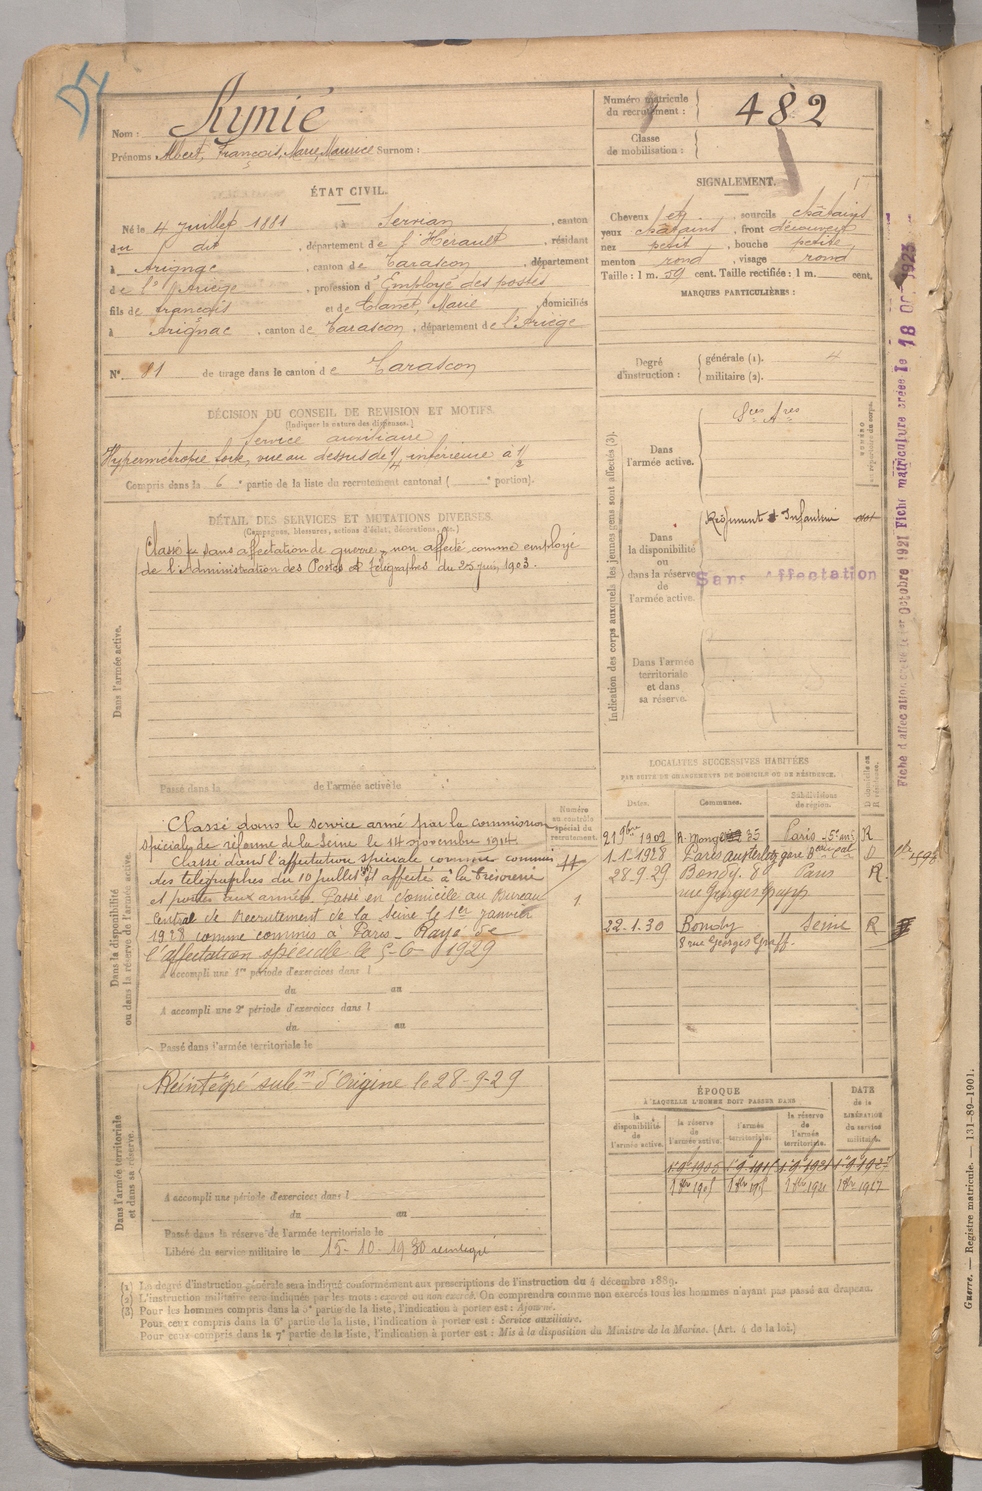 Nom : Rynié
Prénoms : Albert, François, Marie, Maurice Surnom :
Numéro matricule
du recrutement : 482
Classe
de mobilisation :
ÉTAT CIVIL.
Né le 4 Juillet 1881, à Servian, canton
du dit, département de l'Hérault, résidant
à Arignac, canton de Tarascon, département
de l'Ariège, profession d'Employé des postes
fils de François et de Canet, Marie, domiciliés
à Arignac, canton de Tarascon, département de l'Ariège
N° 11 de tirage dans le canton de Tarascon
SIGNALEMENT.
Cheveux et, sourcils châtains
yeux châtains, front découvert
nez petit, bouche petite,
menton rond, visage rond
Taille : 1 m. 59 cent. Taille rectifiée : 1 m. cent.
MARQUES PARTICULIÈRES :
Degré
d'instruction :
générale (1). 4
militaire (2).
DÉCISION DU CONSEIL DE REVISION ET MOTIFS.
(Indiquer la nature des dispenses.)
Service auxiliaire
Hypermétropie forte, vue au dessus de 1/4 inférieure à 1/2
Compris dans la 6e partie de la liste du recrutement cantonal ( e portion).
DÉTAIL DES SERVICES ET MUTATIONS DIVERSES.
(Campagnes, blessures, actions d'éclat, décorations, etc.)
Dans l'armée active.
Classé sans affectation de guerre non affecté comme employé
de l'Administration des Postes et Télégraphes du 25 juin 1903.
Passé dans la de l'armée active le
Indication des corps auxquels les jeunes gens sont affectés (3).
NUMÉRO
au répertoire du corps.
Dans
l'armée active.
Sces Ares
Dans
la disponibilité
ou
dans la réserve
de
l'armée active.
Régiment d'Infanterie
Sans Affectation
Dans l'armée
territoriale
et dans
sa réserve.
Dans la disponibilité
ou dans la réserve de l'armée active.
Numéro
au contrôle
spécial du
recrutement.
Classé dans le service armé par la commission
spéciale de réforme de la Seine le 14 novembre 1914
Classé dans l'affectation spéciale comme commis
des télégraphes du 10 juillet affecté à la trésorerie
et postes aux armées. Passé en domicile au Bureau
Central de Recrutement de la Seine le 1er janvier
1928 comme commis à Paris - Rayé de
l'affectation spéciale le 5-6-1929
1
A accompli une 1re période d'exercices dans l
du au
A accompli une 2e période d'exercices dans l
du au
Passé dans l'armée territoriale le
LOCALITÉS SUCCESSIVES HABITÉES
PAR SUITE DE CHANGEMENTS DE DOMICILE OU DE RÉSIDENCE.
Dates. Communes. Subdivisions
de région.
D. domicile ou
R. résidence.
21 9bre 1902 R. Monge 35 Paris 5e arrt R
1.1.1928 Paris Austerlitz gare Beau Cal D
28.9.29 Bondy. 8 Paris R.
rue Georges Graff
22.1.30 Bondy Seine R
8 rue Georges Graff.
Dans l'armée territoriale
et dans sa réserve.
Réintégré subon d'Origine le 28-9-29
A accompli une période d'exercices dans l
du au
Passé dans la réserve de l'armée territoriale le
Libéré du service militaire le 15-10-1930 réintégré
ÉPOQUE
À LAQUELLE L'HOMME DOIT PASSER DANS
DATE
de la
LIBÉRATION
du service
militaire.
la
disponibilité
de
l'armée active.
la réserve
de
l'armée active.
l'armée
territoriale.
la réserve
de
l'armée
territoriale.
1.9.1905 1.9.1915 1.9.1921 1.9.1927
1 8bre 1905 1 8bre 1915 1 8bre 1921 1 8bre 1927
(1) Le degré d'instruction générale sera indiqué conformément aux prescriptions de l'instruction du 4 décembre 1889.
(2) L'instruction militaire sera indiquée par les mots : exercé ou non exercé. On comprendra comme non exercés tous les hommes n'ayant pas passé au drapeau.
(3) Pour les hommes compris dans la 5e partie de la liste, l'indication à porter est : Ajourné.
Pour ceux compris dans la 6e partie de la liste, l'indication à porter est : Service auxiliaire.
Pour ceux compris dans la 7e partie de la liste, l'indication à porter est : Mis à la disposition du Ministre de la Marine. (Art. 4 de la loi.)
Fiche d'affectation créée le 1er Octobre 1921 Fiche matriculaire créée le 18 OCT 1923
Guerre. — Registre matricule. — 131-89-1901.